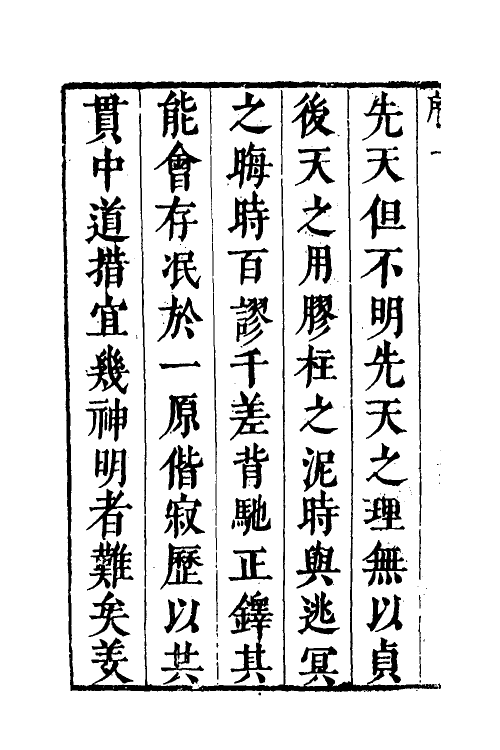 先天但不明先天之理無以貞
後天之用膠柱之泥時與逃冥
之晦時百謬千差背馳正鐸其
能會存泯於一原偕寂歷以共
貫中道措宜幾神明者難矣羑